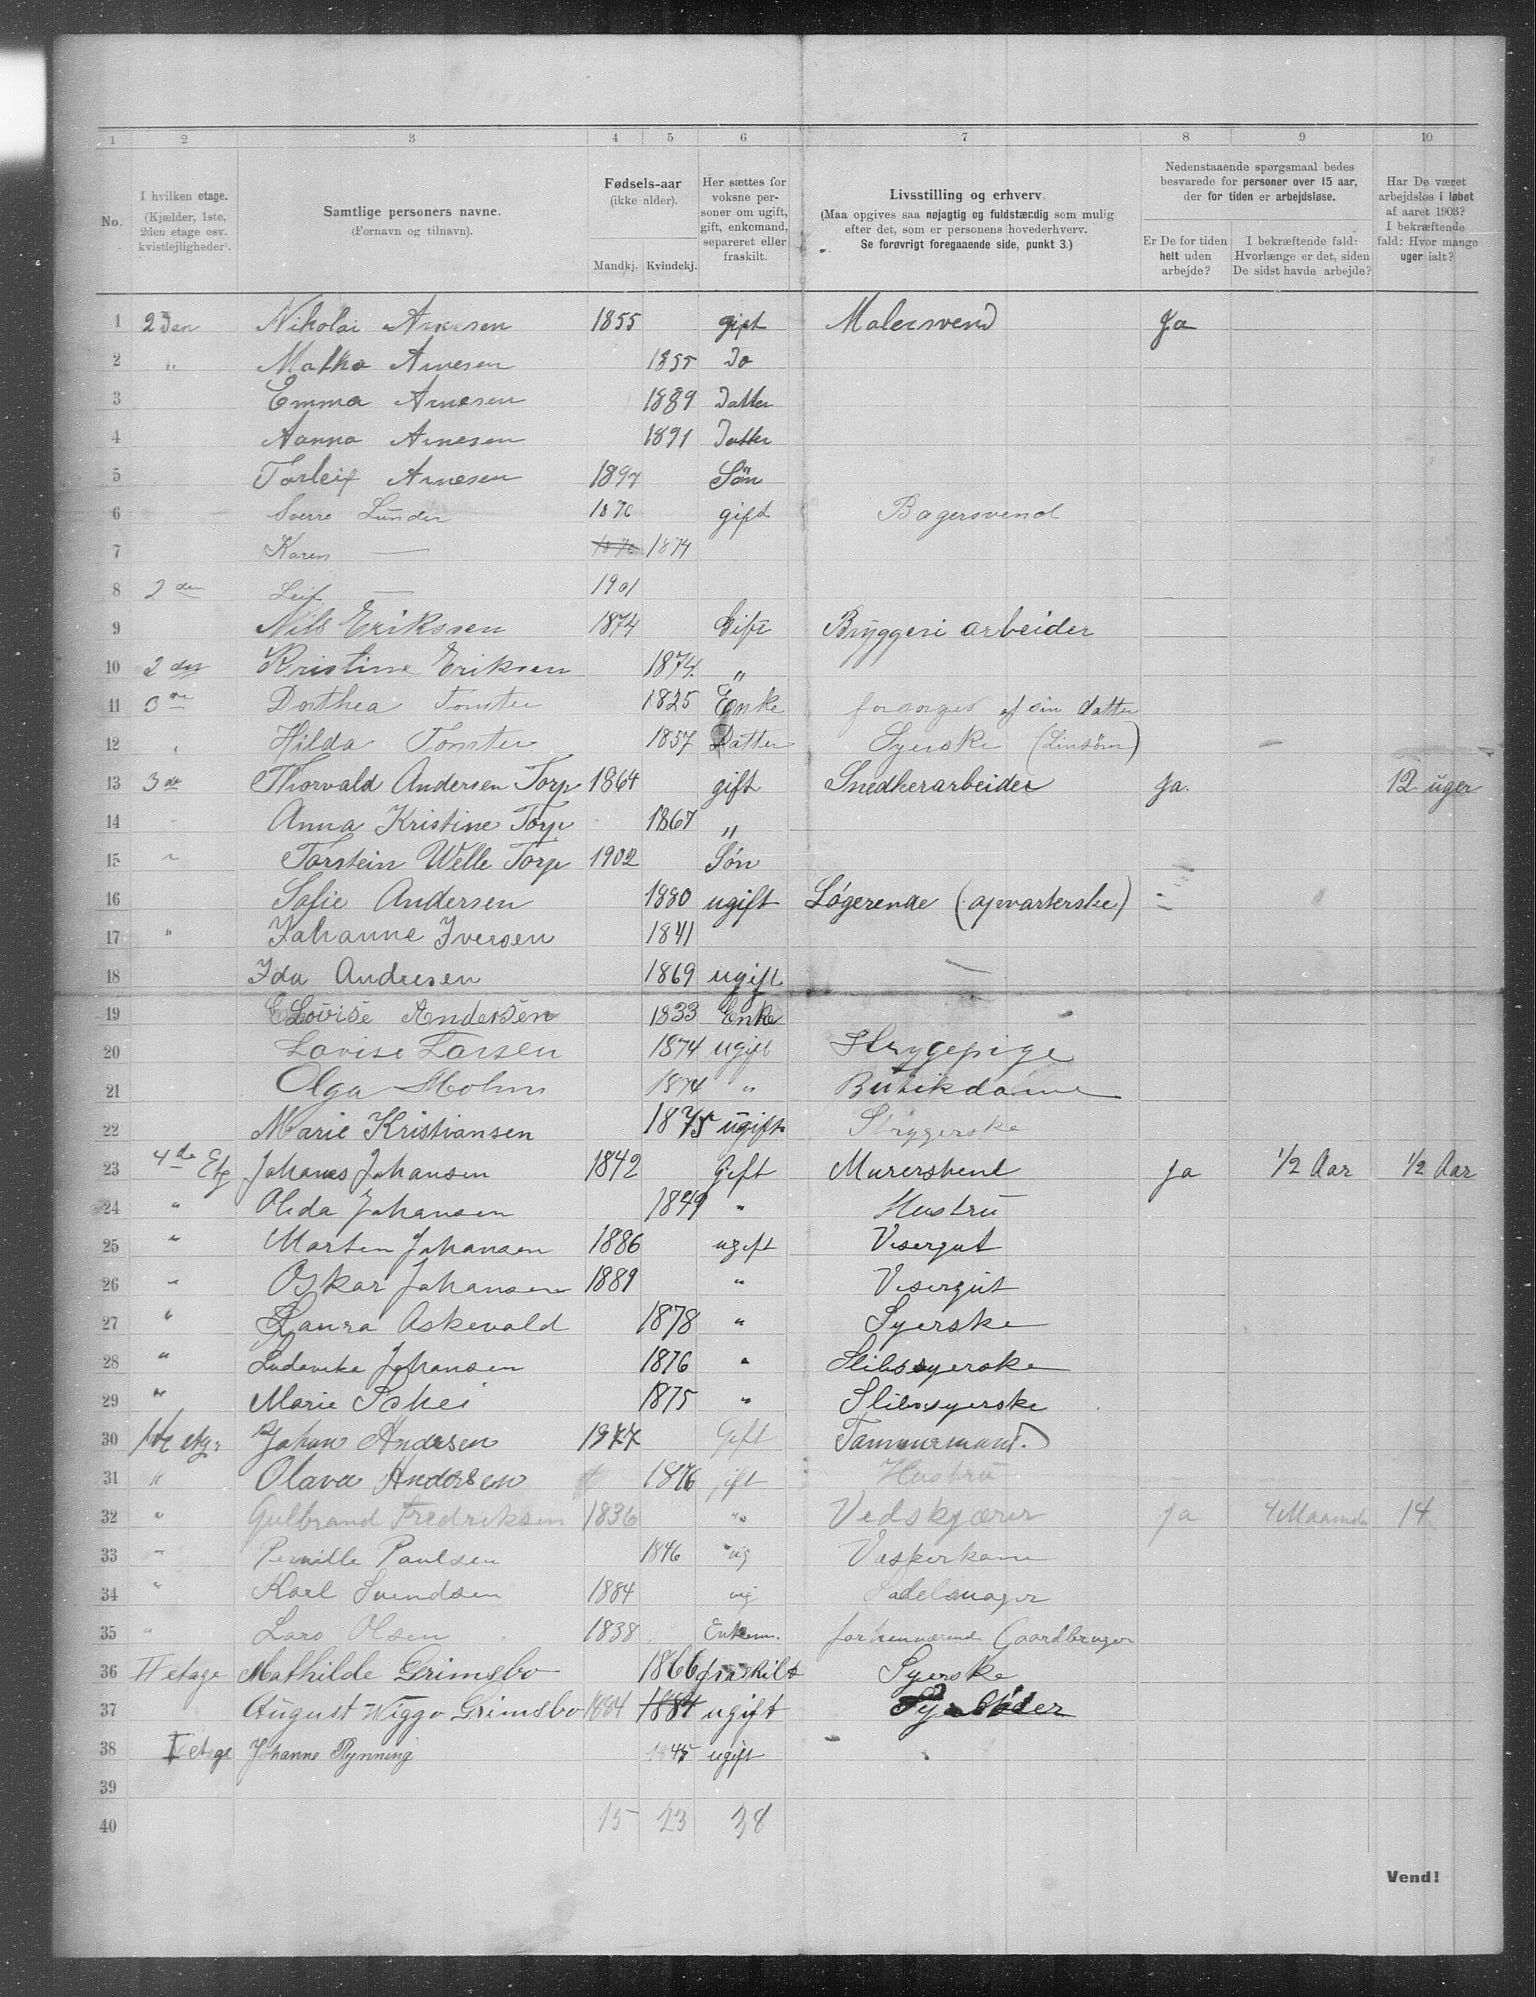 1 2 3 4 5 6 7 8 9 10
No.
I hvilken etage. (Kjælder, 1ste, 2den etage osv. kvistleiligheder).
Samtlige personers navne. (Fornavn og tilnavn).
Fødsels-aar (ikke alder). Mandkj. Kvindekj.
Her sættes for voksne personer om ugift, gift, enkemand, separeret eller fraskilt.
Livsstilling og erhverv. (Maa opgives saa nøjagtig og fuldstændig som mulig efter det, som er personens hovederhverv. Se forøvrigt foregaaende side, punkt 3.)
Nedenstaaende spørgsmaal bedes besvarede for personer over 15 aar, der for tiden er arbejdsløse.
Er De for tiden helt uden arbejde?
I bekræftende fald: Hvorlænge er det, siden De sidst havde arbejde?
Har De været arbejdsløs i løbet af aaret 1903? I bekræftende fald: Hvor mange uger ialt?
1 2den Nikolai Arnesen 1855 gift Malersvend Ja
2 " Arnesen 1855 Do
3 Emma Arnesen 1889 Datter
4 Aanna Arnesen 1891 Datter
5 Torleif Arnesen 1897 Søn
6 Sverre Lunder 1876 gift Bagersvend
7 Karen — 1874
8 2den Leif — 1901
9 Nils Erikssen 1874 Gift Bryggeri arbeider
10 2den Kristine Eriksen 1874. "
11 3de Dorthea 1825 Enke forsørges af sin datter
12 Hilda 1857 Datter Syerske (Linsøm)
13 3de Thorvald Andersen Torp 1864 gift Snedkerarbeider Ja. 12 uger
14 Anna Kristine Torp 1867 "
15 Torstein Welle Torp 1902 Søn
16 Sofie Andersen 1880 ugift Logerende (opvarterske)
17 " Johanne Iversen 1841
18 Ida Andresen 1869 ugift
19 Lovise Andersen 1833 Enke
20 Lovise Larsen 1874 ugift Strygepige
21 Olga Holm 1874 " Butikdame
22 Marie Kristiansen 1875 ugift Strygerske
23 4de Etg Johanes Johansen 1842 Gift Murersvend Ja 1/2 Aar 1/2 Aar
24 " Olida Johansen 1849 " Hustru
25 " Morten Johansen 1886 ugift Visergut
26 " Oskar Johansen 1889 " Visergut
27 " Laura Askevald 1878 " Syerske
28 " Ludovika Johansen 1876 " Slibssyerske
29 " Marie 1875 " Slibssyerske
30 Johan Andersen Gift Tømmermand.
31 " Olava Andersen 1876 gift Hustru
32 " Gulbrand Fredriksen 1836 " Vedskjærer Ja 4 Maaneder 14
33 " Pernille Paulsen 1846 ug Vaskerkone
34 " Karl Svendsen 1884 ug Sadelmager
35 " Lars Olsen 1838 Enkem. forhenværend Gaardbruger
36 II etage Mathilde Grimsbo 1866 fraskilt Syerske
37 August Wiggo Grimsbo 1884 1884 ugift
38 etage Johanne Rynning 1845 ugift
39
40 15 23 38
Vend!